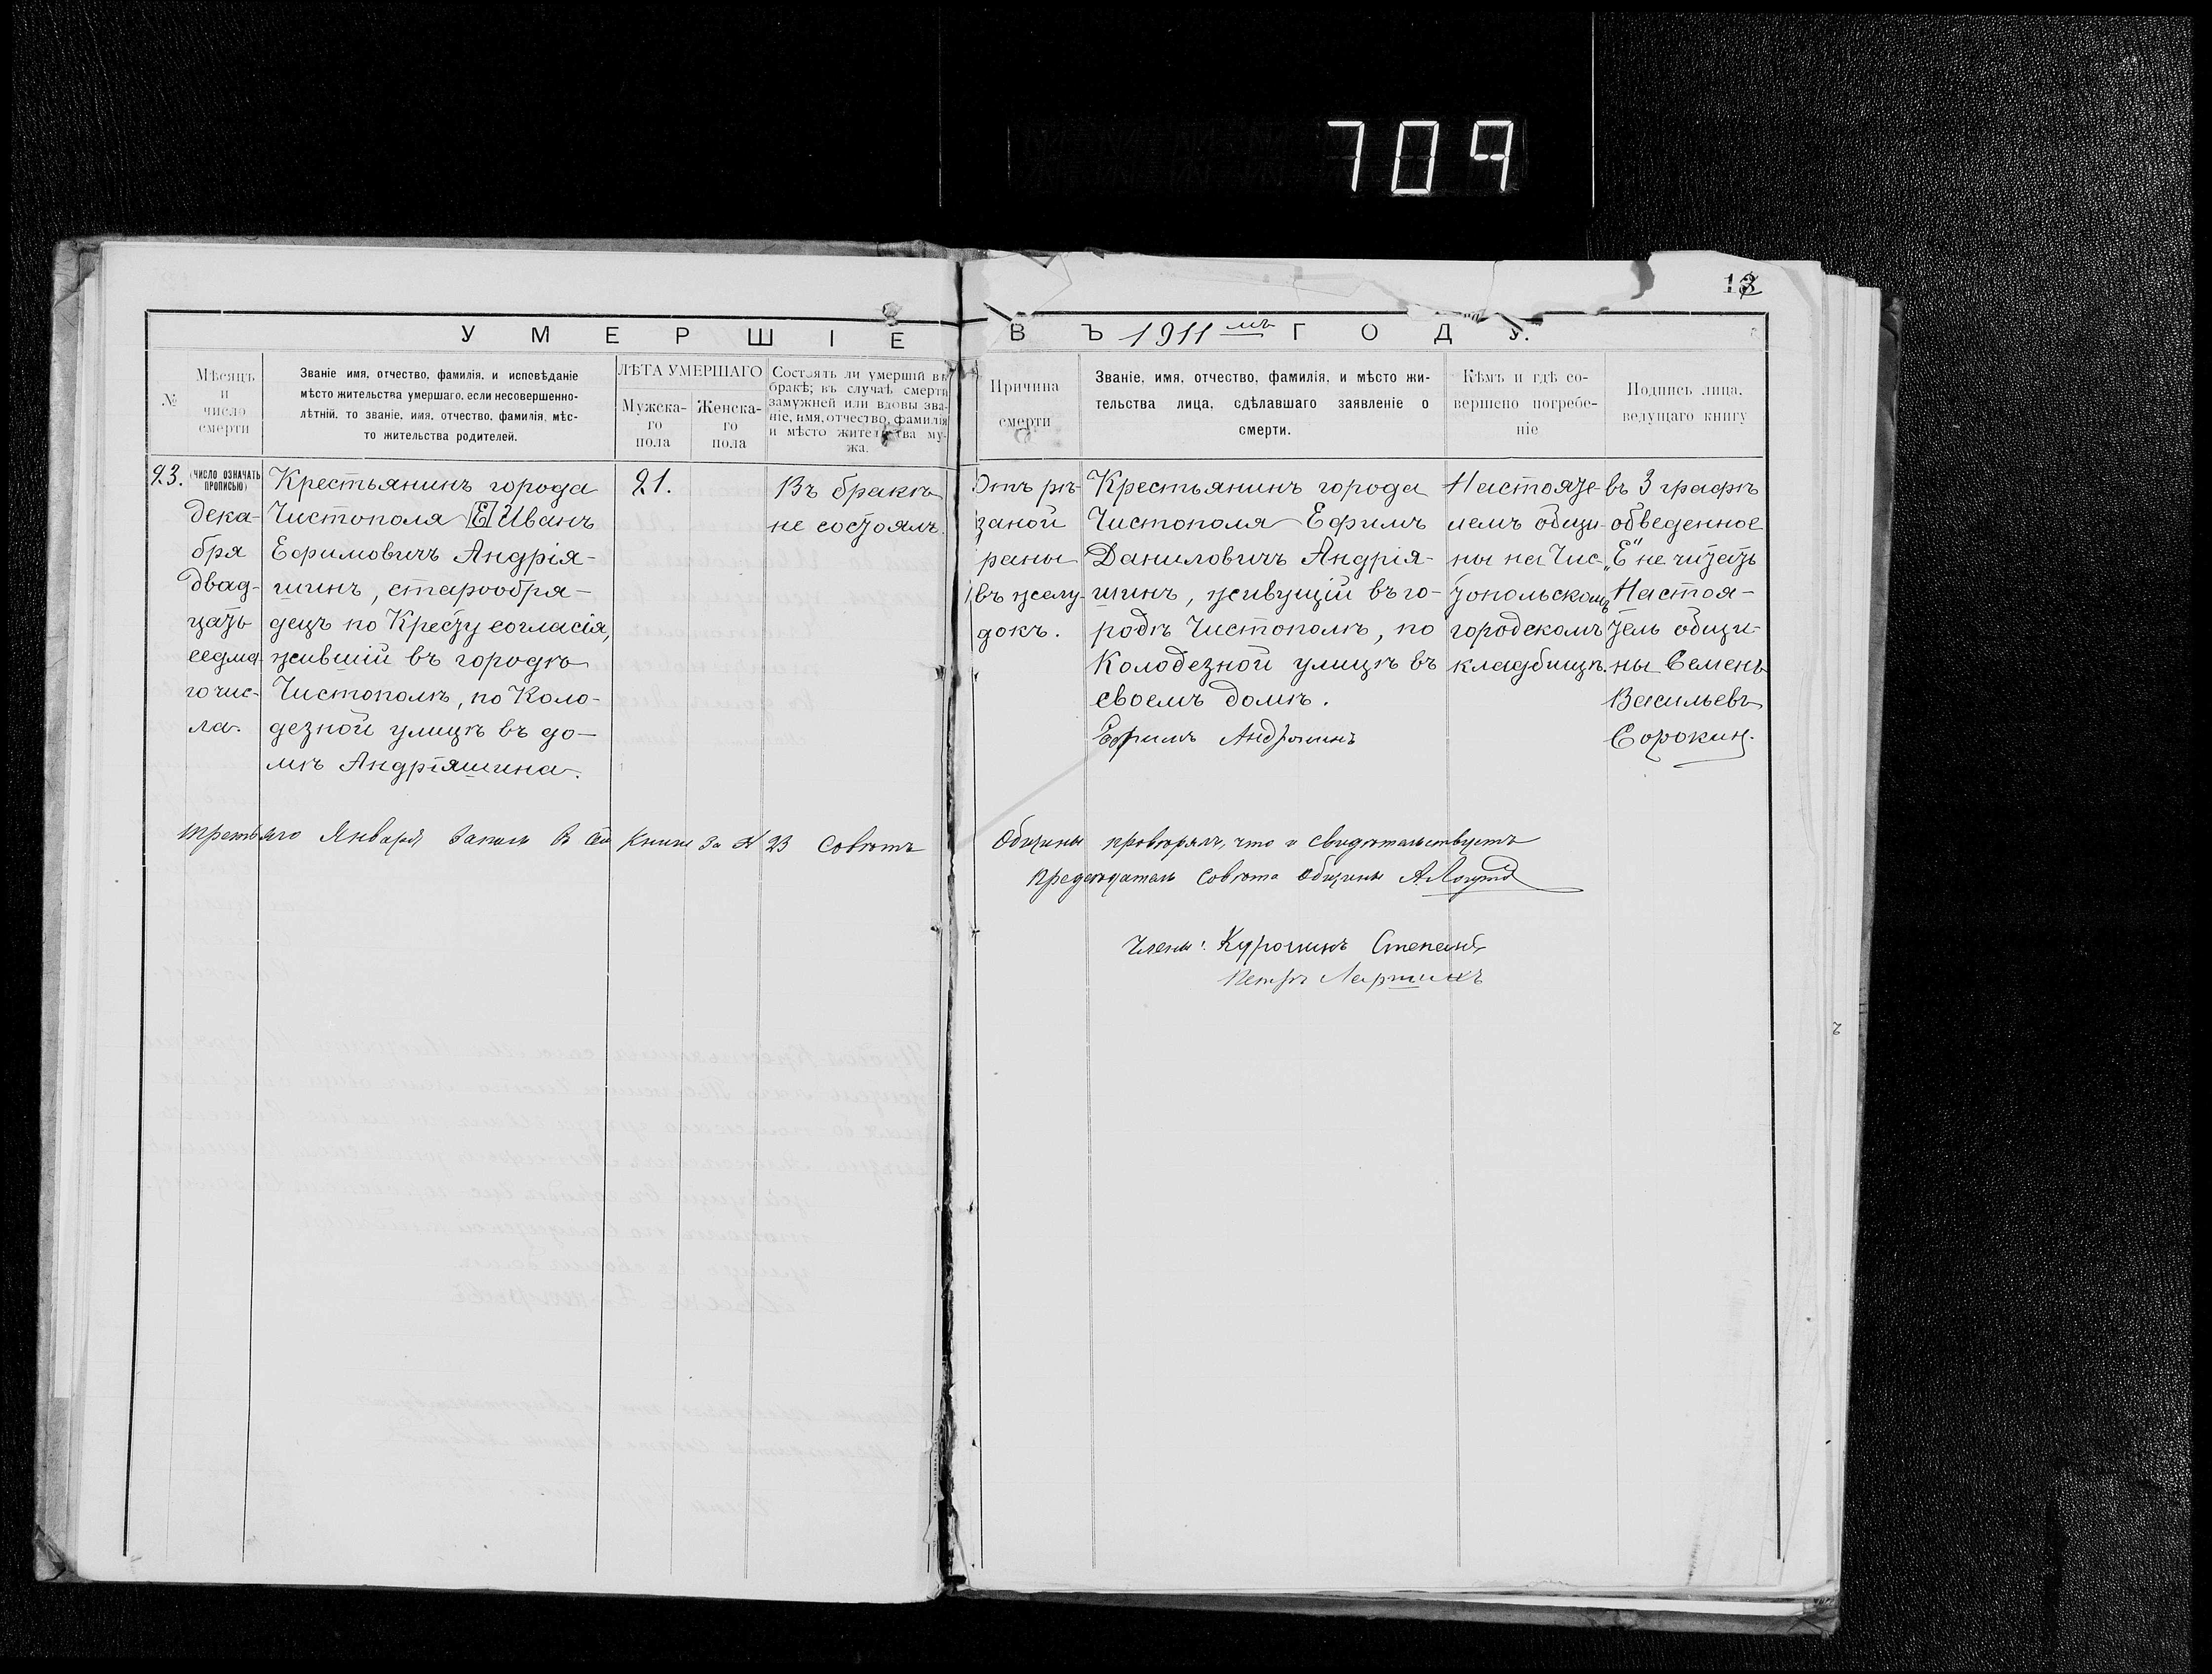 709
13
УМЕРШІЕ ВЪ 1911 мъ ГОДУ.
№
Мѣсяцъ
и
число
смерти
Званіе имя, отчество, фамилія, и исповѣданіе
мѣсто жительства умершаго, если несовершенно-
лѣтній, то званіе, имя, отчество, фамилія, мѣс-
то жительства родителей.
ЛѢТА УМЕРШАГО
Мужска-
го
пола
Женска-
го
пола
Состоялъ ли умершій въ
бракѣ; въ случаѣ смерти
замужней или вдовы зва-
ніе, имя, отчество, фамилія
и мѣсто жительства му-
жа.
Причина
смерти
Званіе, имя, отчество, фамилія, и мѣсто жи-
тельства лица, сдѣлавшаго заявленіе о
смерти.
Кѣмъ и гдѣ со-
вершено погребе-
ніе
Подпись лица,
ведущаго книгу
23.
(ЧИСЛО ОЗНАЧАТЬ
ПРОПИСЬЮ)
дека-
бря
двад-
цать
седма-
го чис-
ла.
Крестьянинъ города
Чистополя Е Иванъ
Ефимовичъ Андрія-
шинъ, старообря-
децъ по Кресту согласія,
жившій въ городѣ
Чистополѣ, по Коло-
дезной улицѣ въ до-
мѣ Андріяшина.
21.
Въ бракѣ
не состоялъ.
Отъ рѣ-
заной
раны
въ желу-
докъ.
Крестьянинъ города
Чистополя Ефимъ
Даниловичъ Андрія-
шинъ, живущій въ го-
родѣ Чистополѣ, по
Колодезной улицѣ въ
своемъ домѣ.
Ефимъ Андряшинъ
Настояте-
лемъ общи-
ны на Чис-
топольскомъ
городскомъ
кладбищѣ.
въ 3 графѣ
обведенное
„Е" не читать
Настоя-
тель общи-
ны Семенъ
Васильевъ
Сорокин.
Третьяго Января запись в сей книги за № 23 Советъ Общины проверялъ, что и свидетельствуетъ
Председатель Совета Общины
Члены: Курошинъ Степанъ
Петръ Ларшинъ